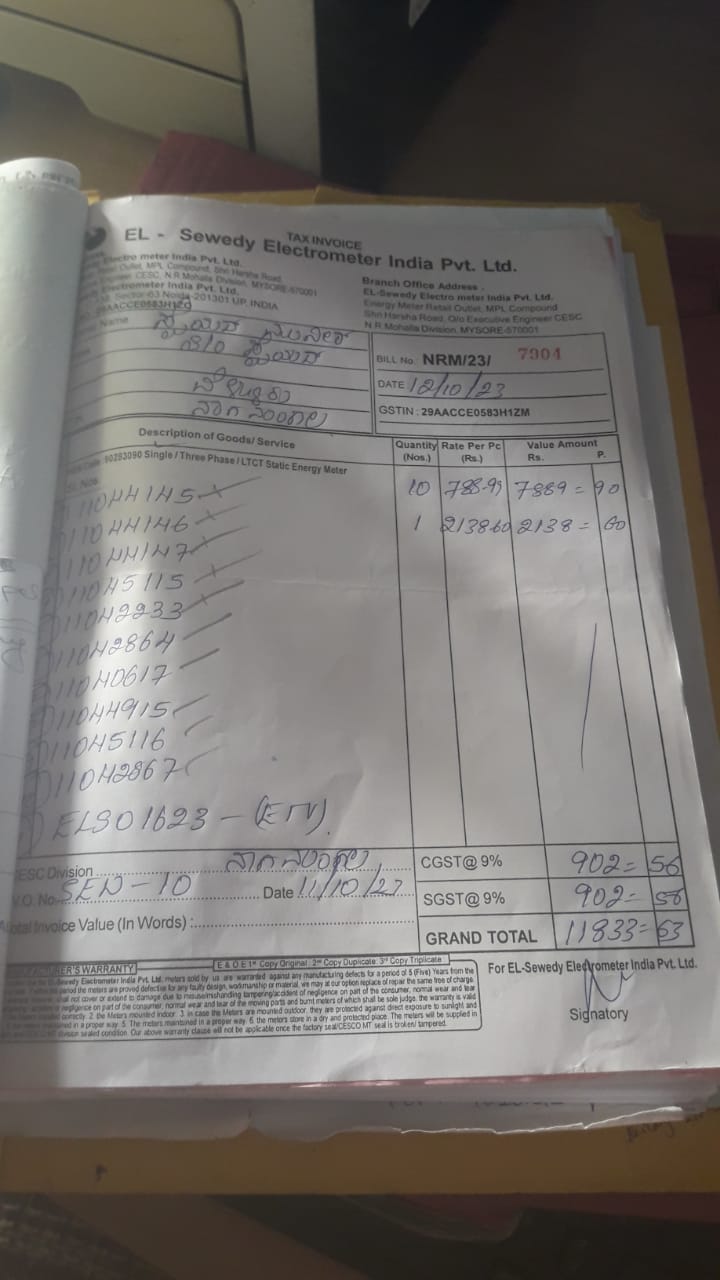 TAX INVOICE
EL - Sewedy Electrometer India Pvt. Ltd.
Electro meter India Pvt. Ltd.
Outlet, MPL Compound, Shri Harsha Road,
CESC, N.R Mohalla Division, MYSORE-570001
Electrometer India Pvt. Ltd.
Sector-63 Noida-201301 UP, INDIA
29AACCE0583H1ZG
Branch Office Address .
EL-Sewedy Electro meter India Pvt. Ltd.
Energy Meter Retail Outlet, MPL Compound
Shri Harsha Road, O/o Executive Engineer CESC
N.R Mohalla Division, MYSORE-570001
Name
S/O
ನಾಗಮಂಗಲ
BILL No. NRM/23/ 7904
DATE 12/10/23
GSTIN : 29AACCE0583H1ZM
Description of Goods/ Service
Quantity (Nos.)
Rate Per Pc (Rs.)
Value Amount
Rs. P.
90283090 Single / Three Phase / LTCT Static Energy Meter
11044145
10 788.99 7889 = 90
11044146
1 2138.60 2138 = 60
11044147
11045115
11042233
11042864
11040617
11044915
11045116
11042867
ELS01623 - (ETV)
CESC Division ನಾಗಮಂಗಲ
CGST@ 9% 902 = 56
SEN-10 Date 11/10/23
SGST@ 9% 902 = 56
Total Invoice Value (In Words) :
GRAND TOTAL 11833 = 63
E & O E 1st Copy Original 2nd Copy Duplicate 3rd Copy Triplicate
MANUFACTURER'S WARRANTY
India Pvt. Ltd. meters sold by us are warranted against any manufacturing defects for a period of 5 (Five) Years from the
period the meters are proved defective for any faulty design, workmanship or material, we may at our option replace of repair the same free of charge.
shall not cover or extend to damage due to misuse/mishandling tampering/accident of negligence on part of the consumer, normal wear and tear
negligence on part of the consumer, normal wear and tear of the moving parts and burnt meters of which shall be sole judge. the warranty is valid
correctly. 2. the Meters mounted indoor. 3. in case the Meters are mounted outdoor, they are protected against direct exposure to sunlight and
maintained in a proper way. 5. The meters maintained in a proper way. 6. the meters store in a dry and protected place. The meters will be supplied in
sealed condition. Our above warranty clause will not be applicable once the factory seal/CESCO MT seal is broken/ tampered.
For EL-Sewedy Electrometer India Pvt. Ltd.
Signatory